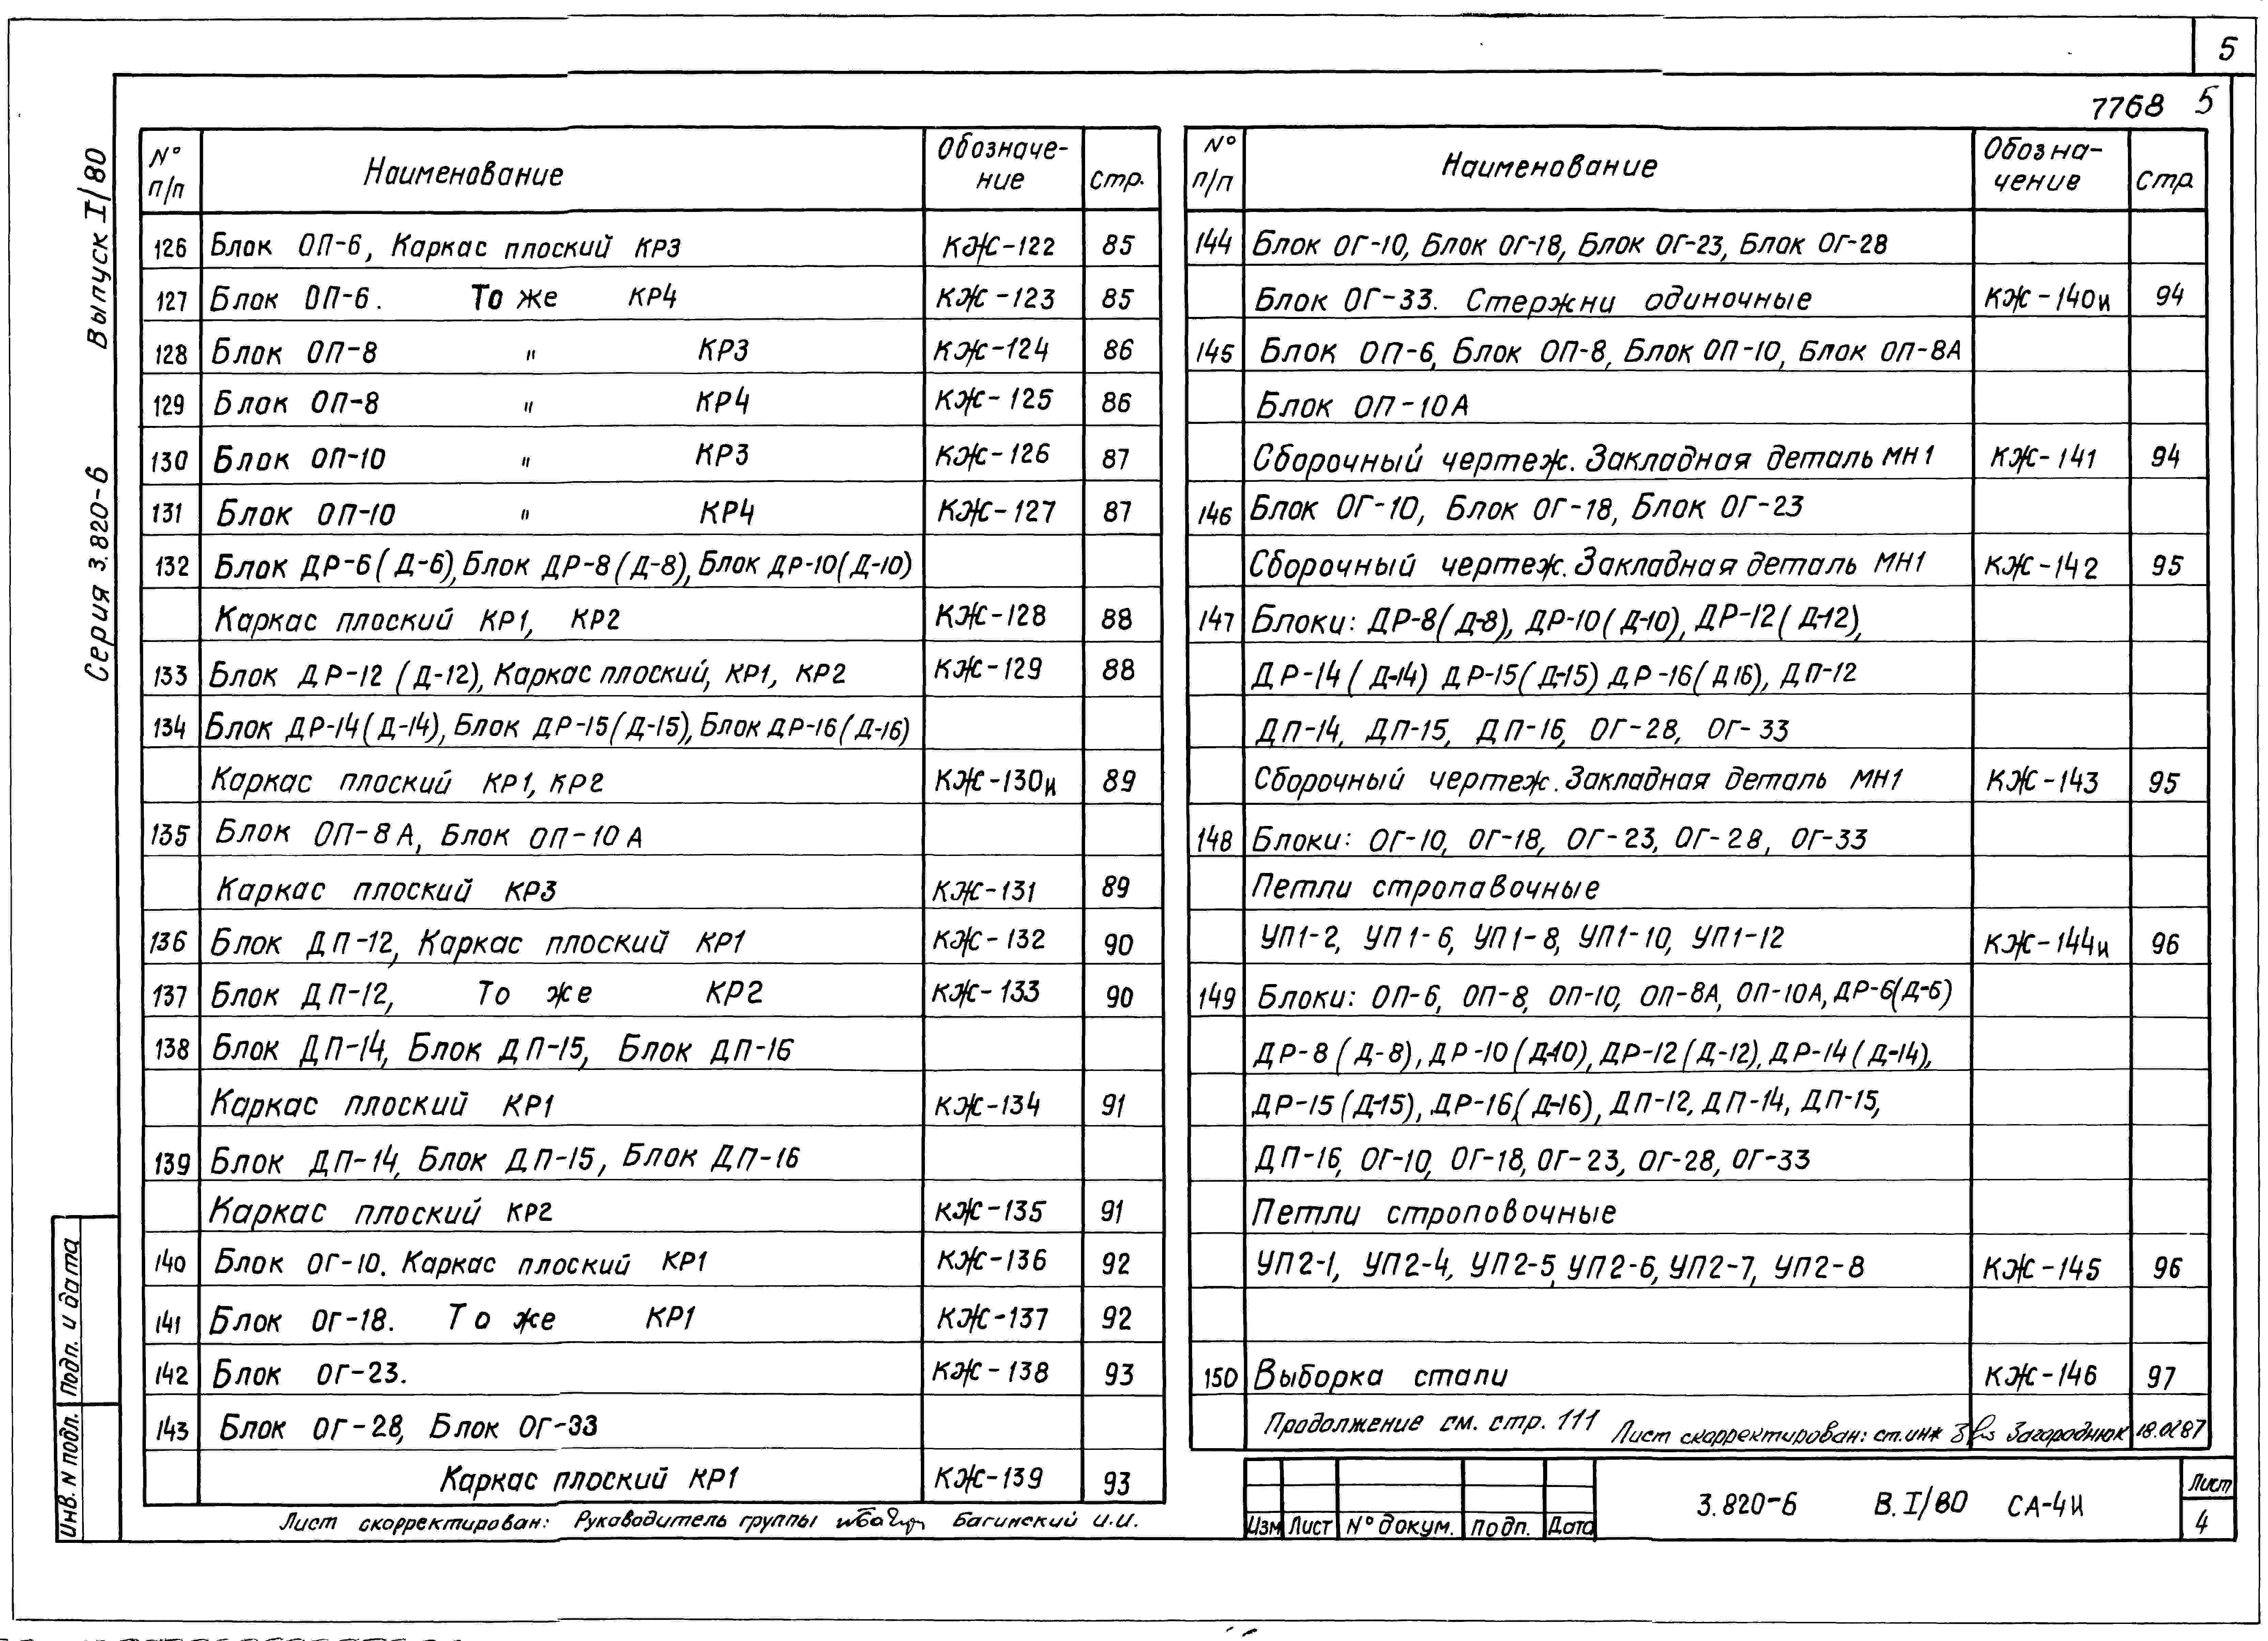 5
7768 5
Серия 3.820-6 Выпуск I/80
№ п/п Наименование Обозначе-ние стр.
126 Блок ОП-6, Каркас плоский КР3 КЖ-122 85
127 Блок ОП-6. То же КР4 КЖ-123 85
128 Блок ОП-8 " КР3 КЖ-124 86
129 Блок ОП-8 " КР4 КЖ-125 86
130 Блок ОП-10 " КР3 КЖ-126 87
131 Блок ОП-10 " КР4 КЖ-127 87
132 Блок ДР-6(Д-6), Блок ДР-8(Д-8), Блок ДР-10(Д-10)
Каркас плоский КР1, КР2 КЖ-128 88
133 Блок ДР-12 (Д-12), Каркас плоский, КР1, КР2 КЖ-129 88
134 Блок ДР-14(Д-14), Блок ДР-15(Д-15), Блок ДР-16(Д-16)
Каркас плоский КР1, КР2 КЖ-130и 89
135 Блок ОП-8А, Блок ОП-10А
Каркас плоский КР3 КЖ-131 89
136 Блок ДП-12, Каркас плоский КР1 КЖ-132 90
137 Блок ДП-12, То же КР2 КЖ-133 90
138 Блок ДП-14, Блок ДП-15, Блок ДП-16
Каркас плоский КР1 КЖ-134 91
139 Блок ДП-14, Блок ДП-15, Блок ДП-16
Каркас плоский КР2 КЖ-135 91
140 Блок ОГ-10. Каркас плоский КР1 КЖ-136 92
141 Блок ОГ-18. То же КР1 КЖ-137 92
142 Блок ОГ-23. КЖ-138 93
143 Блок ОГ-28, Блок ОГ-33
Каркас плоский КР1 КЖ-139 93
Лист скорректирован: Руководитель группы Багинский И.И.
№ п/п Наименование Обозна-чение стр
144 Блок ОГ-10, Блок ОГ-18, Блок ОГ-23, Блок ОГ-28
Блок ОГ-33. Стержни одиночные КЖ-140и 94
145 Блок ОП-6, Блок ОП-8, Блок ОП-10, Блок ОП-8А
Блок ОП-10А
Сборочный чертеж. Закладная деталь МН1 КЖ-141 94
146 Блок ОГ-10, Блок ОГ-18, Блок ОГ-23
Сборочный чертеж. Закладная деталь МН1 КЖ-142 95
147 Блоки: ДР-8(Д-8), ДР-10(Д-10), ДР-12(Д-12),
ДР-14(Д-14) ДР-15(Д-15) ДР-16(Д16), ДП-12
ДП-14, ДП-15, ДП-16, ОГ-28, ОГ-33
Сборочный чертеж. Закладная деталь МН1 КЖ-143 95
148 Блоки: ОГ-10, ОГ-18, ОГ-23, ОГ-28, ОГ-33
Петли стропавочные
УП1-2, УП1-6, УП1-8, УП1-10, УП1-12 КЖ-144и 96
149 Блоки: ОП-6, ОП-8, ОП-10, ОП-8А, ОП-10А, ДР-6(Д-6)
ДР-8(Д-8), ДР-10(Д-10), ДР-12(Д-12), ДР-14(Д-14),
ДР-15(Д-15), ДР-16(Д-16), ДП-12, ДП-14, ДП-15,
ДП-16, ОГ-10, ОГ-18, ОГ-23, ОГ-28, ОГ-33
Петли строповочные
УП2-1, УП2-4, УП2-5, УП2-6, УП2-7, УП2-8 КЖ-145 96
150 Выборка стали КЖ-146 97
Продолжение см. стр. 111
Лист скорректирован: ст.инж Загороднюк
Изм Лист № докум. Подп. Дата
3.820-6 В.I/80 СА-4И
Лист
4
Инв. N подл. Подп. и дата